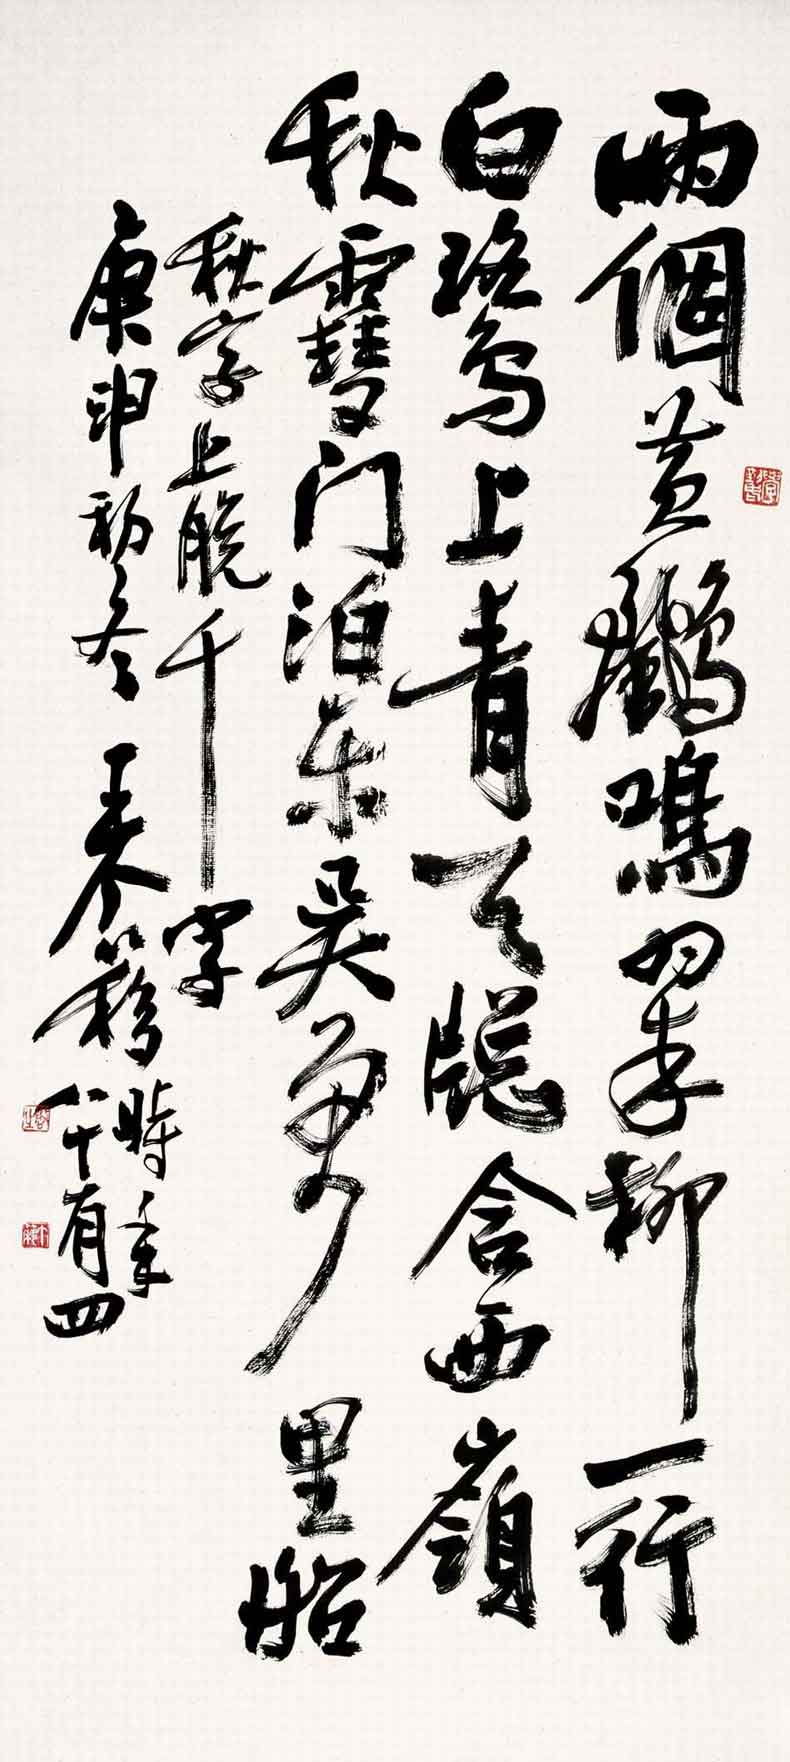 兩個黃鸝鳴翠柳一行
白鷺上青天牕含西嶺
秋雪门泊东吳萬里船
秋字上脫千字
庚申初冬王个簃時年
八十有四